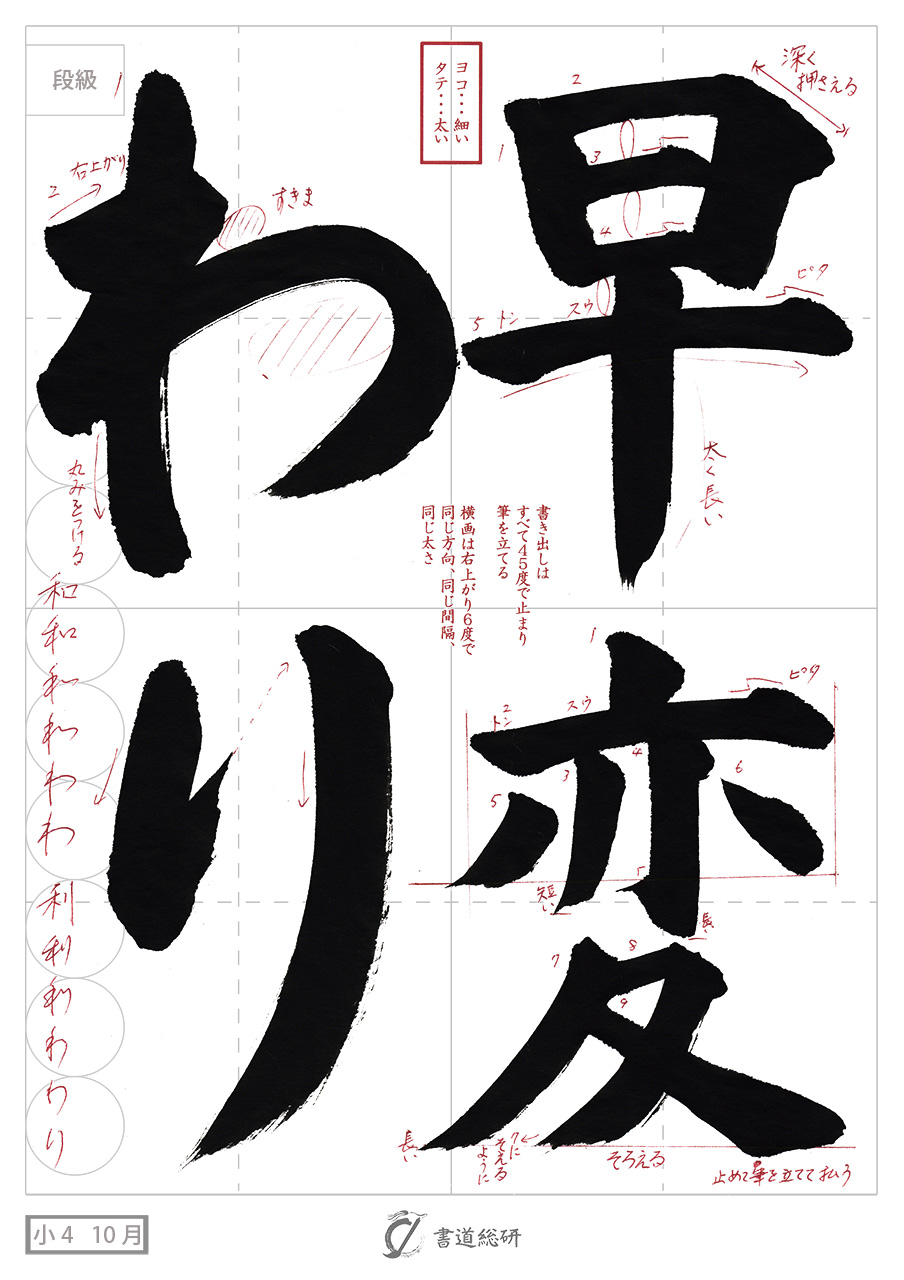 早変
わり
段級
ヨコ・・・細い
タテ・・・太い
深く
押さえる
1
2
3
4
5
トン
スウ
ピタ
太く長い
書き出しは
すべて45度で止まり
筆を立てる
横画は右上がり6度で
同じ方向、同じ間隔、
同じ太さ
1
2
トン
スウ
ピタ
3
4
5
6
短い
長い
7
8
9
長い
7に
そえる
ように
そろえる
止めて筆を立てて払う
1
2
右上がり
すきま
丸みをつける
和
和
和
和
わ
わ
利
利
利
わ
わ
り
小4 10月
書道総研